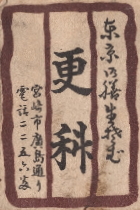 東京の
更科
宮崎市廣島通り
電話二二五六番